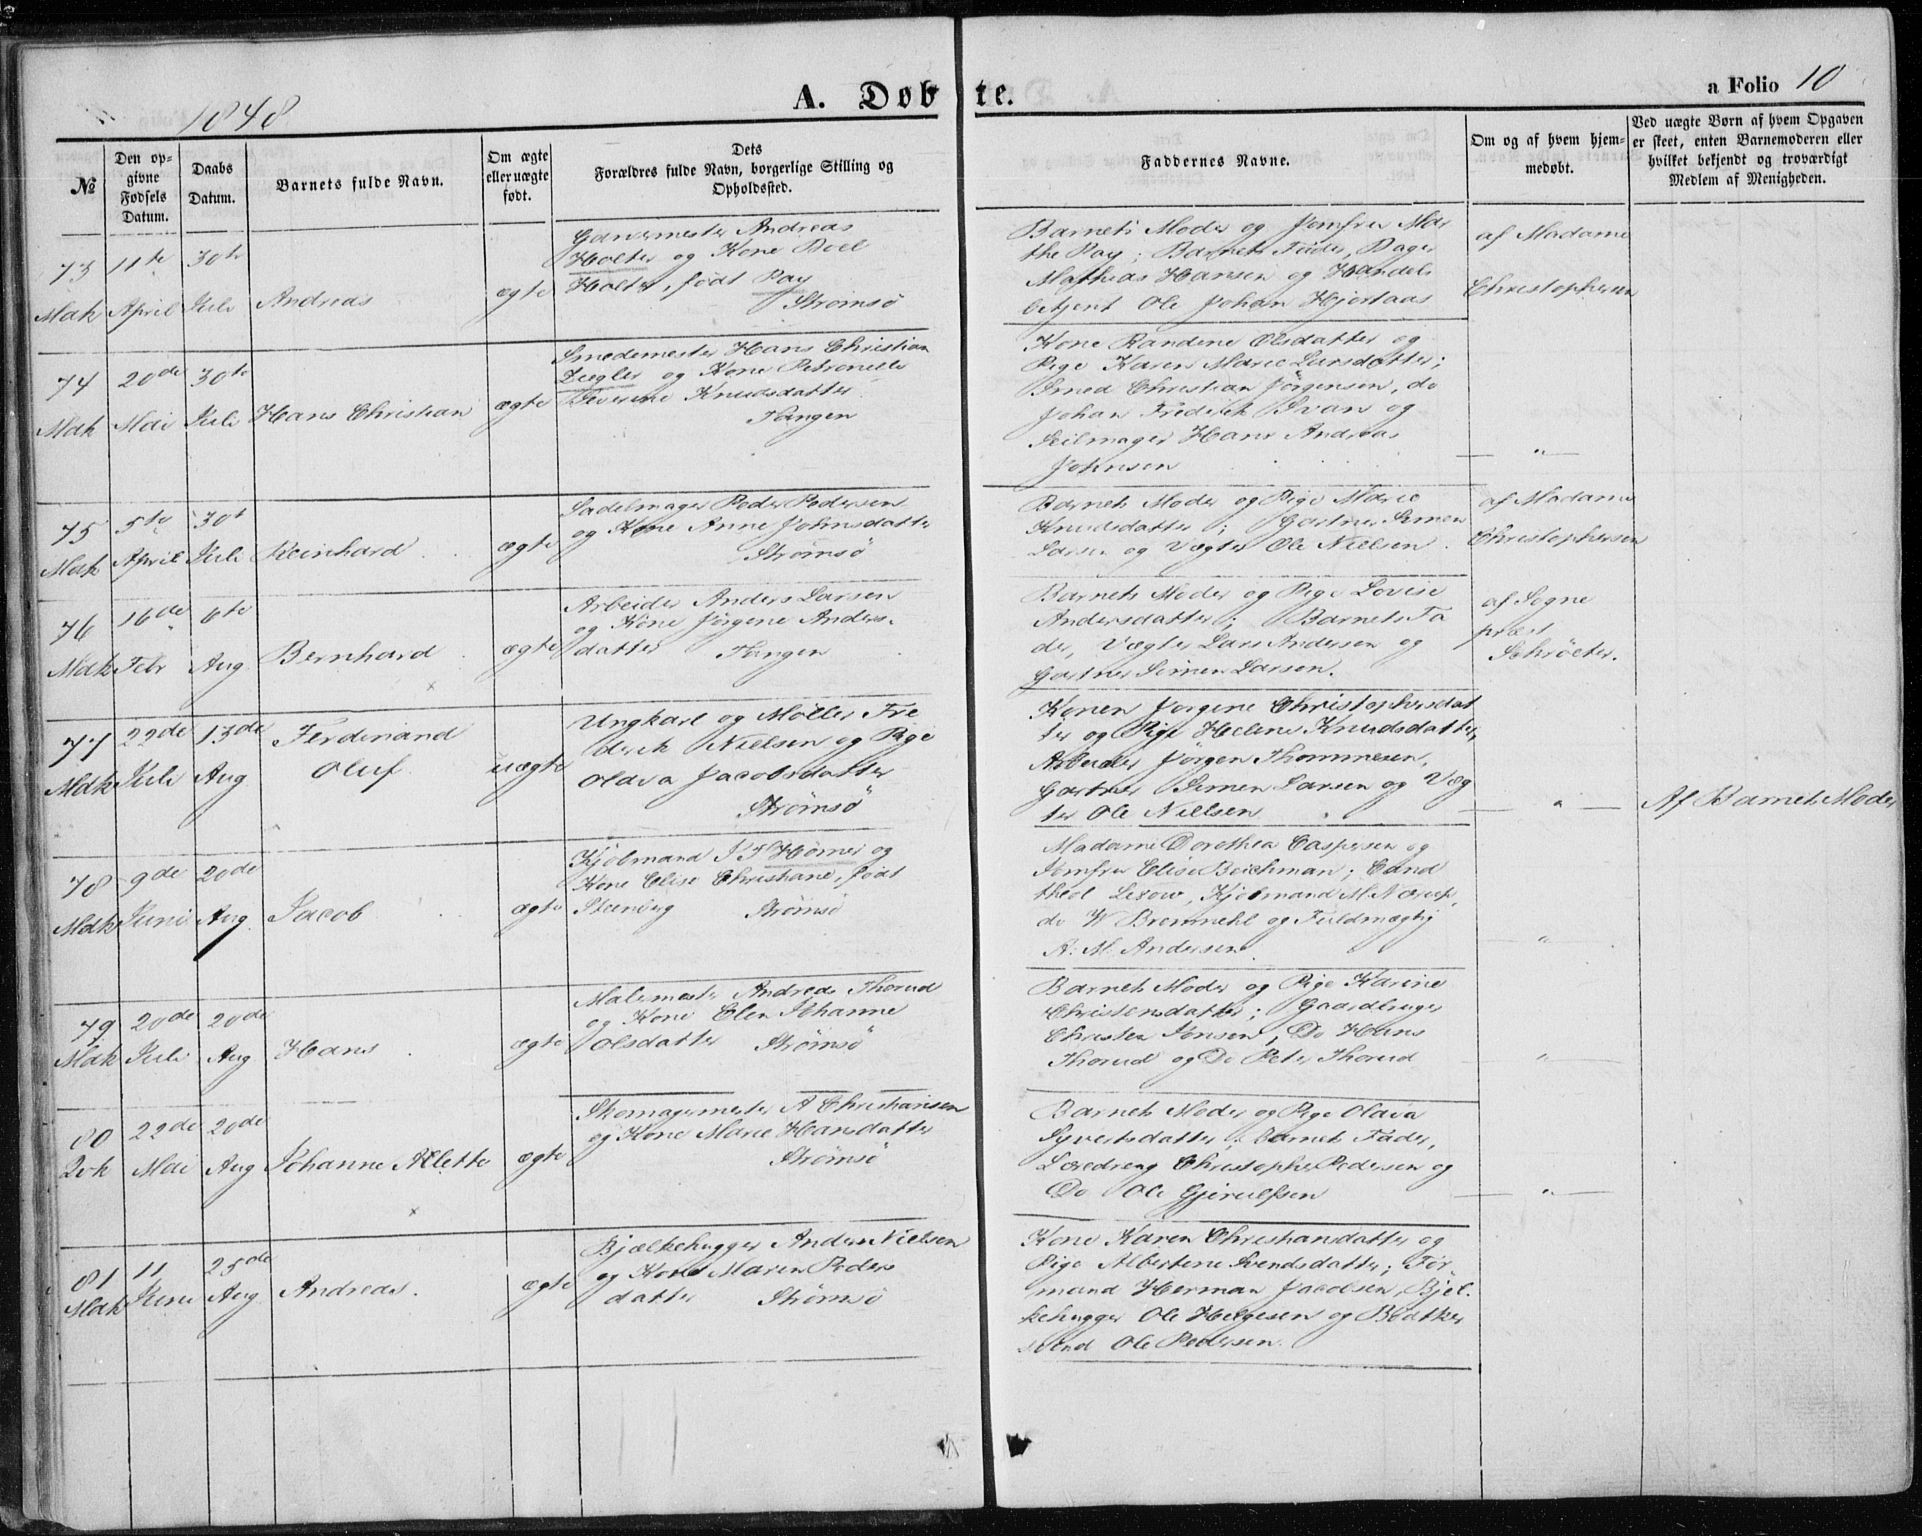 1848
A. Døbte.
a Folio 10
№
Den op-
givne
Fødsels
Datum.
Daabs
Datum.
Barnets fulde Navn.
Om ægte
eller uægte
født.
Dets
Forældres fulde Navn, borgerlige Stilling og
Opholdssted.
Faddernes Navne.
Om og af hvem hjem-
medøbt.
Ved uægte Børn af hvem Opgaven
er skeet, enten Barnemoderen eller
hvilket bekjendt og troværdigt
Medlem af Menigheden.
73
Mdk
11te
April
30te
Juli
Andreas
ægte
Andreas
Holter og Kone Boel
Holter, født Pay
Strømsö
Barnets Moder og Jomfru Mar
the Pay; Barnets Fader, Bager
Mathias Hansen og Handels
betjent Ole Johan Hjertaas
af Madame
Christophersen
74
Mdk
20de
Mai
30te
Juli
Hans Christian
ægte
Smedemester Hans Christian
Ziegler og Kone Petronelle
Severine Knudsdatter
Tangen
Kone Randine Olsdatter og
Pige Karen Marie Larsdatter;
Smed Christian Jörgensen, do
Johan Fredrik Svan og
Seilmager Hans Andreas
Johnsen
— " —
75
Mdk
5te
April
30t
Juli
Reinhard
ægte
Sadelmager Peder Pedersen
og Kone Anne Johnsdatter
Strömsö
Barnets Moder og Pige Marie
Knudsdatter; Gartner Simen
Larsen og Vægter Ole Nielsen
af Madame
Christophersen
76
Mdk
16de
Febr
6te
Aug
Bernhard
ægte
Arbeider Anders Larsen
og Kone Jörgine Anders-
datter Tangen
Barnets Moder og Pige Lovise
Andersdatter; Barnets Fa
der, Vægter Lars Andersen og
Gartner Simen Larsen.
af Sogne
præst
Schröeter.
77
Mdk
22de
Juli
13de
Aug
Ferdinand
Oluf
uægte
Ungkarl og Möller Fre
derik Nielsen og Pige
Olava Jacobsdatter
Strömsö
Konen Jörgine Christophersdat
ter og Pige Helene Knudsdatter,
Arbeider Jörgen Thommesen,
Gartner Simen Larsen og Væg
ter Ole Nielsen
— " —
Af Barnets Moder
78
Mdk
9de
Juni
20de
Aug
Jacob
ægte
Kjöbmand og
Kone Elise Christiane, født
Steenberg Strömsö
Madame Dorothea Caspersen og
Jomfru Elise Beichman; Cand
theol Lexow, Kjöbmand M. Nærup,
do W Bremmehl og Fuldmægtig
A. M. Andersen
"
79
Mdk
20de
Juli
20de
Aug
Hans
ægte
Malermester Andreas Thorud
og Kone Elen Johanne
Olsdatter Strömsö
Barnets Moder og Pige Karine
Christensdatter; Gaardbruger
Christen Jonsen, Do Hans
Thorud og Do Peter Thorud
— " —
80
Qvk
22de
Mai
20de
Aug
Johanne Alette
ægte
Skomagermester A Christiansen
og Kone Marie Hansdatter
Strömsö
Barnets Moder og Pige Olava
Syvertsdatter, Barnets Fader,
Læredreng Christopher Pedersen og
Do Ole Gjerulfsen
— " —
81
Mdk
11
Juni
25de
Aug
Andreas
ægte
Bjælkehugger Anders Nielsen
og Kone Maren Peders
datter Strömsö
Kone Karen Christiansdatter og
Pige Albertine Svendsdatter; For
mand Herman Jacobsen, Bjel-
kehugger Ole Helgesen og Bödtker
svend Ole Pedersen.